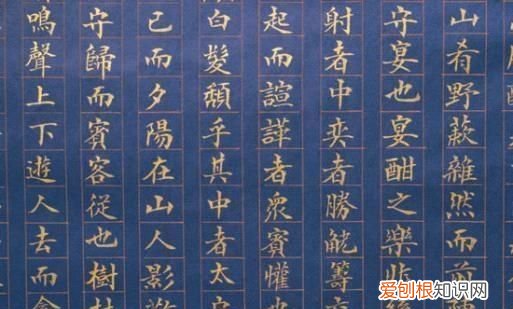 山肴野蔌雜然而前
守宴也宴酣之樂非
射者中奕者勝觥籌
起而諠譁者衆賓懽也
白髮頹乎其中者太
已而夕陽在山人影散
守歸而賓客從也樹林
鳴聲上下遊人去而禽
爱刨根知识网